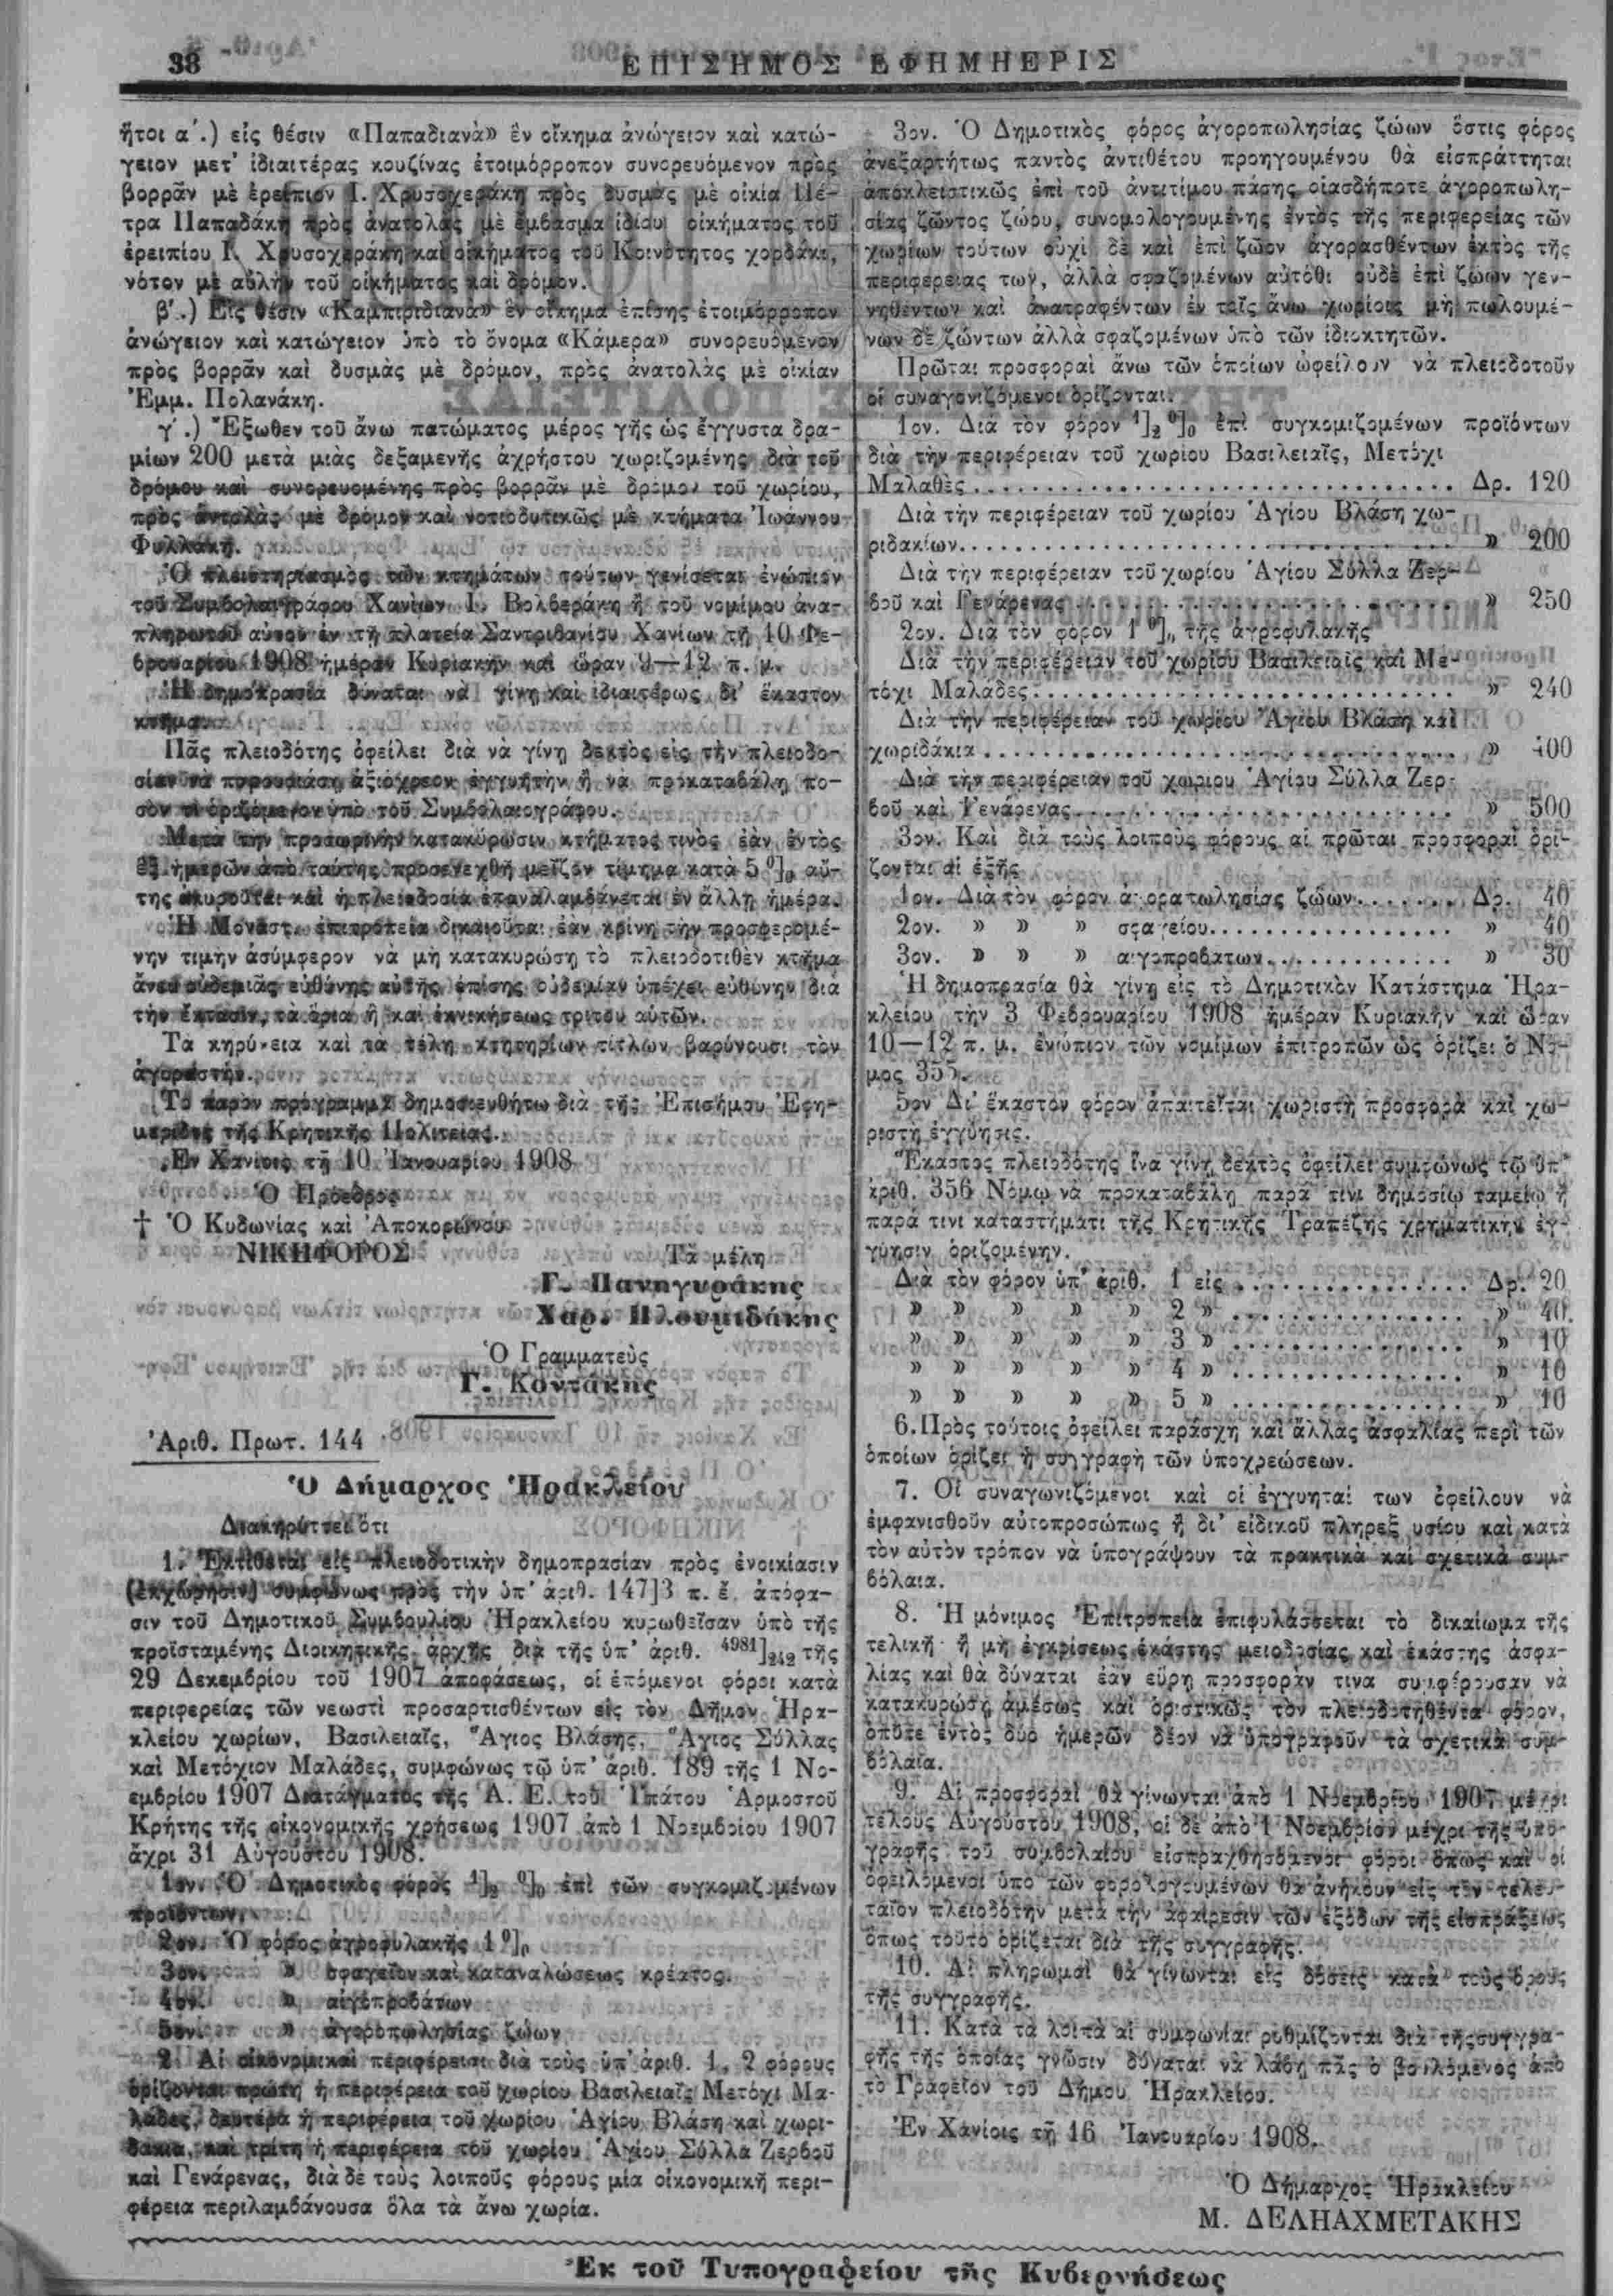 38
ΕΠΙΣΗΜΟΣ ΕΦΗΜΗΕΡΙΣ
ἤτοι α΄.) εἰς θέσιν «Παπαδιανὰ» ἓν οἴκημα ἀνώγειον καὶ κατώ-
γειον μετ' ἰδιαιτέρας κουζίνας ἑτοιμόρροπον συνορευόμενον πρὸς
βορρᾶν μὲ ἐρείπιον Ι. Χρυσοχεράκη πρὸς δυσμὰς μὲ οἰκία Πέ-
τρα Παπαδάκη πρὸς ἀνατολὰς μὲ ἔμβασμα ἰδίου οἰκήματος τοῦ
ἐρειπίου Ι. Χρυσοχεράκη καὶ οἰκήματος τοῦ Κοινότητος χορδάκι,
νότον μὲ αὐλὴν τοῦ οἰκήματος καὶ δρόμον.
β΄.) Εἰς θέσιν «Καμπιριδιανὰ» ἓν οἴκημα ἐπίσης ἑτοιμόρροπον
ἀνώγειον καὶ κατώγειον ὑπὸ τὸ ὄνομα «Κάμερα» συνορευόμενον
πρὸς βορρᾶν καὶ δυσμὰς μὲ δρόμον, πρὸς ἀνατολὰς μὲ οἰκίαν
Ἐμμ. Πολανάκη.
γ΄.) Ἔξωθεν τοῦ ἄνω πατώματος μέρος γῆς ὡς ἔγγυστα δρα-
μίων 200 μετὰ μιὰς δεξαμενῆς ἀχρήστου χωριζομένης διὰ τοῦ
δρόμου καὶ συνορευομένης πρὸς βορρᾶν μὲ δρόμον τοῦ χωρίου,
πρὸς ἀντολὰς μὲ δρόμον καὶ νοτιοδυτικῶς μὲ κτήματα Ἰωάννου
Φυλλάκη.
Ὁ πλειστηριασμὸς τῶν κτημάτων τούτων γενίσεται ἐνώπιον
τοῦ Συμβολαιγράφου Χανίων Ι. Βολβεράκη ἢ τοῦ νομίμου ἀνα-
πληρωτοῦ αὐτοῦ ἐν τῇ πλατεία Σαντριβανίου Χανίων τῇ 10 Φε-
βρουαρίου 1908 ἡμέραν Κυριακὴν καὶ ὥραν 9—12 π. μ.
Ἡ δημοκρασία δύναται νὰ γίνῃ καὶ ἰδιαιτέρως δι' ἕκαστον
κτῆμα.
Πᾶς πλειοδότης ὀφείλει διὰ νὰ γίνῃ δεκτὸς εἰς τὴν πλειοδο-
σίαν νὰ παρουσιάσῃ ἀξιόχρεον ἐγγυητὴν ἢ νὰ προκαταβάλῃ πο-
σὸν τι ὁριζόμενον ὑπὸ τοῦ Συμβολαιογράφου.
Μετὰ τὴν προσωρινὴν κατακύρωσιν κτήματος τινὸς ἐὰν ἐντὸς
ἓξ ἡμερῶν ἀπὸ ταύτης προσενεχθῇ μεῖζον τίμημα κατὰ 5 0]0 αὕ-
της ἀκυροῦται καὶ ἡ πλειοδοσία ἐπαναλαμβάνεται ἐν ἄλλῃ ἡμέρα.
Ἡ Μοναστ. ἐπιτροπεία δικαιοῦται ἐὰν κρίνῃ τὴν προσφερομέ-
νην τιμὴν ἀσύμφερον νὰ μὴ κατακυρώσῃ τὸ πλειοδοτιθὲν κτῆμα
ἄνευ οὐδεμιᾶς εὐθύνης αὐτῆς ἐπίσης οὐδεμίαν ὑπέχει εὐθύνην διὰ
τὴν ἔκτασιν, τὰ ὅρια ἢ καὶ ἐκνικήσεως τρίτου αὐτῶν.
Τὰ κηρύκεια καὶ τὰ τέλη κτητηρίων τίτλων βαρύνουσι τὸν
ἀγοραστήν.
Τὸ παρὸν πρόγραμμα δημοσιευθήτω διὰ τῆς Ἐπισήμου Ἐφη-
μερίδος τῆς Κρητικῆς Πολιτείας.
Ἐν Χανίοις τῇ 10 Ἰανουαρίου 1908
Ὁ Πρόεδρος
† Ὁ Κυδωνίας καὶ Ἀποκορώνου
ΝΙΚΗΦΟΡΟΣ
Τὰ μέλη
Γ. Πανηγυράκης
Χαρ. Πλουμιδάκης
Ὁ Γραμματεὺς
Γ. Κοντάκης
Ἀριθ. Πρωτ. 144
Ὁ Δήμαρχος Ἡρακλείου
Διακηρύττει ὅτι
1. Ἐκτίθεται εἰς πλειοδοτικὴν δημοπρασίαν πρὸς ἐνοικίασιν
(ἐκχώρησιν) συμφώνως πρὸς τὴν ὑπ' ἀριθ. 147]3 π. ἔ. ἀπόφα-
σιν τοῦ Δημοτικοῦ Συμβουλίου Ἡρακλείου κυρωθεῖσαν ὑπὸ τῆς
προϊσταμένης Διοικητικῆς ἀρχῆς διὰ τῆς ὑπ' ἀριθ. 4981]242 τῆς
29 Δεκεμβρίου τοῦ 1907 ἀποφάσεως, οἱ ἑπόμενοι φόροι κατὰ
περιφερείας τῶν νεωστὶ προσαρτισθέντων εἰς τὸν Δῆμον Ἡρα-
κλείου χωρίων, Βασιλειαῖς, Ἅγιος Βλάσης, Ἅγιος Σύλλας
καὶ Μετόχιον Μαλάδες, συμφώνως τῷ ὑπ' ἀριθ. 189 τῆς 1 Νο-
εμβρίου 1907 Διατάγματος τῆς Ἀ. Ε. τοῦ Ὑπάτου Ἁρμοστοῦ
Κρήτης τῆς οἰκονομικῆς χρήσεως 1907 ἀπὸ 1 Νοεμβρίου 1907
ἄχρι 31 Αὐγούστου 1908.
1ον. Ὁ Δημοτικὸς φόρος 1]2 0]0 ἐπὶ τῶν συγκομιζομένων
προϊόντων.
2ον. Ὁ φόρος ἀγροφυλακῆς 1 0]0
3ον. » σφαγείων καὶ καταναλώσεως κρέατος.
4ον. » αἰγοπροβάτων
5ον. » ἀγοροπωλησίας ζώων
2. Αἱ οἰκονομικαὶ περιφέρειαι διὰ τοὺς ὑπ' ἀριθ. 1, 2 φόρους
ὁρίζονται πρώτη ἡ περιφέρεια τοῦ χωρίου Βασιλειαῖς Μετόχι Μα-
λάδες, δευτέρα ἡ περιφέρεια τοῦ χωρίου Ἁγίου Βλάση καὶ χωρι-
δάκια, καὶ τρίτη ἡ περιφέρεια τοῦ χωρίου Ἁγίου Σύλλα Ζερβοῦ
καὶ Γενάρενας, διὰ δὲ τοὺς λοιποὺς φόρους μία οἰκονομικὴ περι-
φέρεια περιλαμβάνουσα ὅλα τὰ ἄνω χωρία.
3ον. Ὁ Δημοτικὸς φόρος ἀγοροπωλησίας ζώων ὅστις φόρος
ἀνεξαρτήτως παντὸς ἀντιθέτου προηγουμένου θὰ εἰσπράττηται
ἀποκλειστικῶς ἐπὶ τοῦ ἀντιτίμου πάσης οἱασδήποτε ἀγοροπωλη-
σίας ζῶντος ζώου, συνομολογουμένης ἐντὸς τῆς περιφερείας τῶν
χωρίων τούτων οὐχὶ δὲ καὶ ἐπὶ ζώων ἀγορασθέντων ἐκτὸς τῆς
περιφερείας των, ἀλλὰ σφαζομένων αὐτόθι οὐδὲ ἐπὶ ζώων γεν-
νηθέντων καὶ ἀνατραφέντων ἐν ταῖς ἄνω χωρίοις μὴ πωλουμέ-
νων δὲ ζώντων ἀλλὰ σφαζομένων ὑπὸ τῶν ἰδιοκτητῶν.
Πρῶται προσφοραὶ ἄνω τῶν ὁποίων ὠφείλουν νὰ πλειοδοτοῦν
οἱ συναγονιζόμενοι ὁρίζονται.
1ον. Διὰ τὸν φόρον 1]2 0]0 ἐπὶ συγκομιζομένων προϊόντων
διὰ τὴν περιφέρειαν τοῦ χωρίου Βασιλειαῖς, Μετόχι
Μαλαθὲς . . . . . . . . . . Δρ. 120
Διὰ τὴν περιφέρειαν τοῦ χωρίου Ἁγίου Βλάση χω-
ριδακίων . . . . . . . . . . » 200
Διὰ τὴν περιφέρειαν τοῦ χωρίου Ἁγίου Σύλλα Ζερ-
βοῦ καὶ Γενάρενας . . . . . . . . . . » 250
2ον. Διὰ τὸν φόρον 1 0]0 τῆς ἀγροφυλακῆς
Διὰ τὴν περιφέρειαν τοῦ χωρίου Βασιλειαῖς καὶ Με-
τόχι Μαλαδες . . . . . . . . . . » 240
Διὰ τὴν περιφέρειαν τοῦ χωρίου Ἁγίου Βλάση καὶ
χωριδάκια . . . . . . . . . . » 400
Διὰ τὴν περιφέρειαν τοῦ χωρίου Ἁγίου Σύλλα Ζερ-
βοῦ καὶ Γενάρενας . . . . . . . . . . » 500
3ον. Καὶ διὰ τοὺς λοιποὺς φόρους αἱ πρῶται προσφοραὶ ὁρί-
ζονται αἱ ἑξῆς
1ον. Διὰ τὸν φόρον ἀγορατωλησίας ζώων . . . . . Δρ. 40
2ον. » » » σφαγείου . . . . . » 40
3ον. » » » αἰγοπροβατων . . . . . » 30
Ἡ δημοπρασία θὰ γίνῃ εἰς τὸ Δημοτικὸν Κατάστημα Ἡρα-
κλείου τὴν 3 Φεβρουαρίου 1908 ἡμέραν Κυριακὴν καὶ ὥραν
10—12 π. μ. ἐνώπιον τῶν νομίμων ἐπιτροπῶν ὡς ὁρίζει ὁ Νό-
μος 355.
5ον Δι' ἕκαστον φόρον ἀπαιτεῖται χωριστὴ προσφορὰ καὶ χω-
ριστὴ ἐγγύησις.
Ἕκαστος πλειοδότης ἵνα γίνῃ δεκτὸς ὀφείλει συμφώνως τῷ ὑπ'
ἀριθ. 356 Νόμῳ νὰ προκαταβάλῃ παρά τινι δημοσίῳ ταμείῳ ἢ
παρά τινι καταστήματι τῆς Κρητικῆς Τραπέζης χρηματικὴν ἐγ-
γύησιν ὁριζομένην.
Διὰ τὸν φόρον ὑπ' ἀριθ. 1 εἰς . . . . . Δρ. 20
» » » » » 2 » . . . . . » 40.
» » » » » 3 » . . . . . » 10
» » » » » 4 » . . . . . » 10
» » » » » 5 » . . . . . » 10
6. Πρὸς τούτοις ὀφείλει παράσχῃ καὶ ἄλλας ἀσφαλίας περὶ τῶν
ὁποίων ὁρίζει ἡ συγγραφὴ τῶν ὑποχρεώσεων.
7. Οἱ συναγωνιζόμενοι καὶ οἱ ἐγγυηταί των ὀφείλουν νὰ
ἐμφανισθοῦν αὐτοπροσώπως ἢ δι' εἰδικοῦ πληρεξουσίου καὶ κατὰ
τὸν αὐτὸν τρόπον νὰ ὑπογράψουν τὰ πρακτικὰ καὶ σχετικὰ συμ-
βόλαια.
8. Ἡ μόνιμος Ἐπιτροπεία ἐπιφυλάσσεται τὸ δικαίωμα τῆς
τελικῆ ἢ μὴ ἐγκρίσεως ἑκάστης μειοδοσίας καὶ ἑκάστης ἀσφα-
λίας καὶ θὰ δύναται ἐὰν εὕρῃ προσφορὰν τινα συμφέρουσαν νὰ
κατακυρώσῃ ἀμέσως καὶ ὁριστικῶς τὸν πλειοδοτηθέντα φόρον,
ὁπότε ἐντὸς δύο ἡμερῶν δέον νὰ ὑπογραφοῦν τὰ σχετικὰ συμ-
βόλαια.
9. Αἱ προσφοραὶ θὰ γίνωνται ἀπὸ 1 Νοεμβρίου 1907 μέχρι
τέλους Αὐγούστου 1908, οἱ δὲ ἀπὸ 1 Νοεμβρίου μέχρι τῆς ὑπο-
γραφῆς τοῦ συμβολαίου εἰσπραχθησόμενοι φόροι ὅπως καὶ οἱ
ὀφειλόμενοι ὑπὸ τῶν φορολογουμένων θὰ ἀνήκουν εἰς τὸν τελευ-
ταῖον πλειοδότην μετὰ τὴν ἀφαίρεσιν τῶν ἐξόδων τῆς εἰσπράξεως
ὅπως τοῦτο ὁρίζεται διὰ τῆς συγγραφῆς.
10. Αἱ πληρωμαὶ θὰ γίνωνται εἰς δόσεις κατὰ τοὺς ὅρους
τῆς συγγραφῆς.
11. Κατὰ τὰ λοιπὰ αἱ συμφωνίαι ρυθμίζονται διὰ τῆς συγγρα-
φῆς τῆς ὁποίας γνῶσιν δύναται νὰ λάβῃ πᾶς ὁ βουλόμενος ἀπὸ
τὸ Γραφεῖον τοῦ Δήμου Ἡρακλείου.
Ἐν Χανίοις τῇ 16 Ἰανουαρίου 1908.
Ὁ Δήμαρχος Ἡρακλείου
Μ. ΔΕΛΗΑΧΜΕΤΑΚΗΣ
Ἐκ τοῦ Τυπογραφείου τῆς Κυβερνήσεως